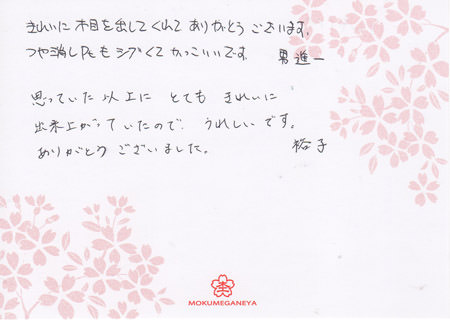 きれいに木目を出してくれてありがとうございます。
つや消しPtもシブくてかっこいいです。 男進一
思っていた以上に とても きれいに
出来上がっていたので、うれしいです。
ありがとう ございました。 裕子
MOKUMEGANEYA